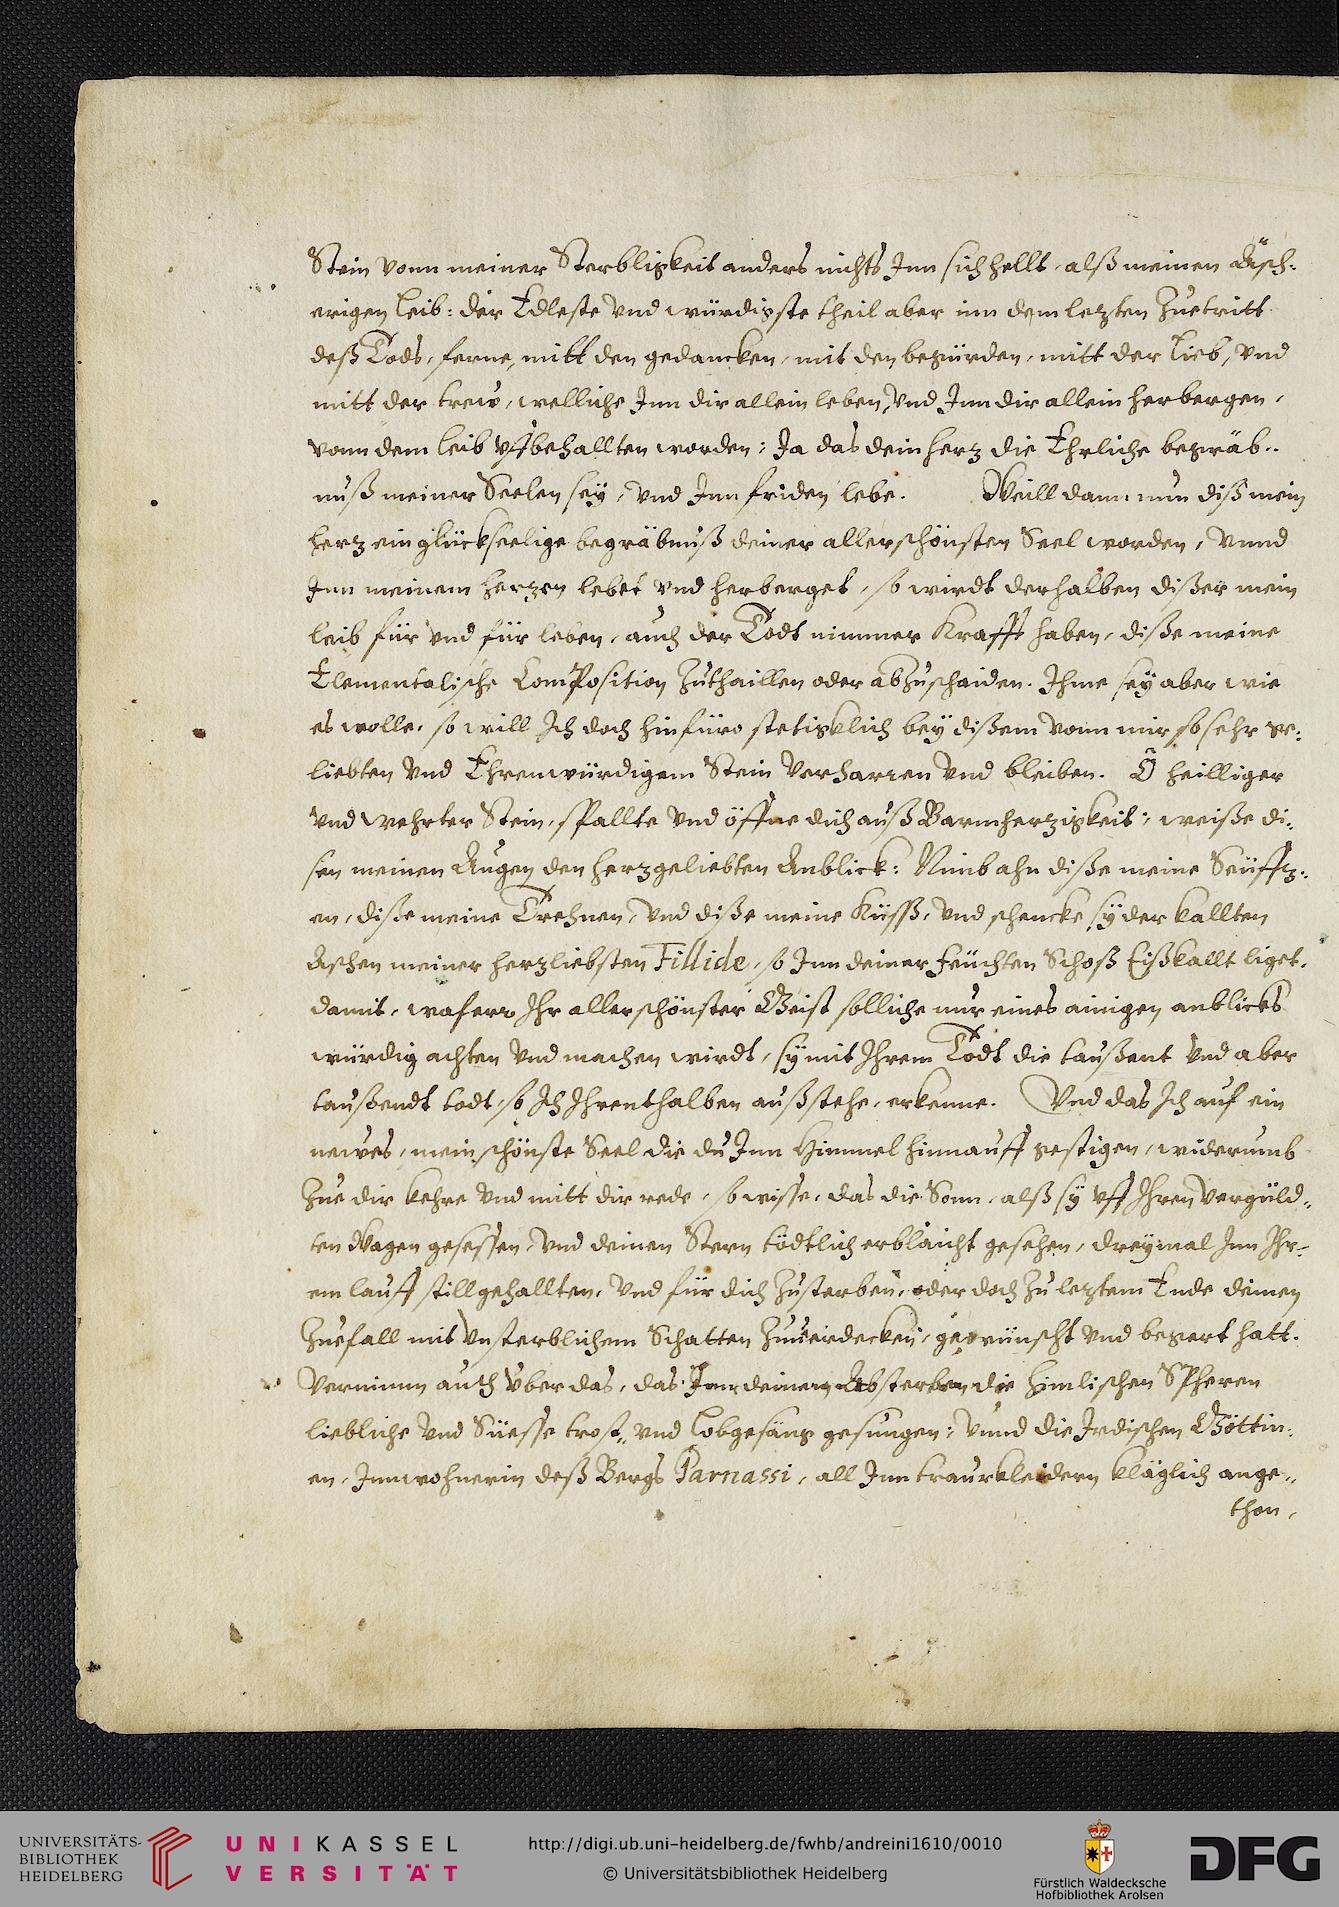 Stein vonn meiner Sterbligkeit anders nichts Jnn sich hellt, alß meinen Äsch-
erigen Leib: der Edleste vnd würdigste theil aber inn dem letzten Zuetritt
deß Tods, ferne, mitt den gedancken, mit den begürden, mitt der Lieb, vnd
mitt der trew, welliche Jnn dir allein leben, vnd Jnn dir allein herbergen,
vonn dem leib vffbehallten worden: Ja das dein hertz die Ehrliche begräb-
nuß meiner Seelen sey, vnd Jnn friden lebe. Weill dann nun diß mein
hertz ein glückseelige begräbnuß deiner allerschönsten Seel worden, vnnd
Jnn meinem hertzen lebet vnd herberget, so wirdt derhalben dißer mein
leib für vnd für leben, auch der Todt nimmer Krafft haben, diße meine
Elementalische ComPosition Zuthaillen oder abzuschaiden. Jhme sey aber wie
es wolle, so will Jch doch hinfüro stetigklich bey dißem vonn mir so sehr ge-
liebten vnd Ehrenwürdigem Stein verharren vnd bleiben. Ö heilliger
vnd wehrter Stein, spallte vnd öffne dich auß Barmhertzigkeit, weiße di-
sen meinen Augen den hertzgeliebten Anblick: Nimb ahn diße meine Seüfftz-
en, diße meine Trehnen, vnd diße meine Küsß, vnd schencke sy der kallten
Aschen meiner hertzliebsten Fillide, so Jnn deiner feüchten Schoß Eißkallt liget,
damit, wafern Jhr allerschönster Geist solliche nur eines ainigen anblicks
würdig achten vnd machen wirdt, sy mit Jhrem Todt die taußent vnd aber
taußendt todt, so Jch Jhrenthalben außstehe, erkenne. Vnd das Jch auf ein
newes, mein schönste Seel die du Jnn Himmel hinnauff gestigen, widerumb
Zue dir kehre vnd mitt dir rede, so wisse, das die Sonn, alß sy vff Jhren vergüld-
ten Wagen gesessen, vnd deinen Stern tödtlich erblaicht gesehen, dreymal Jnn Jhr-
em lauff still gehallten, vnd für dich Zusterben, oder doch Zu letztem Ende deinen
Zuefall mit vnsterblichem Schatten Zuuerdecken, gewünscht vnd begert hatt.
Vernimm auch über das, das Jnn deinem Absterben die himlischen SPheren
liebliche vnd Süesse trost- vnd Lobgesäng gesungen; vnnd die Jrdischen Göttin-
en, Jnnwohnerin deß Bergs Parnassi, all Jnn traurkleidern kläglich ange-
thon,
UNIVERSITÄTS-
BIBLIOTHEK
HEIDELBERG
UNIKASSEL
VERSITÄT
http://digi.ub.uni-heidelberg.de/fwhb/andreini1610/0010
© Universitätsbibliothek Heidelberg
Fürstlich Waldecksche
Hofbibliothek Arolsen
DFG